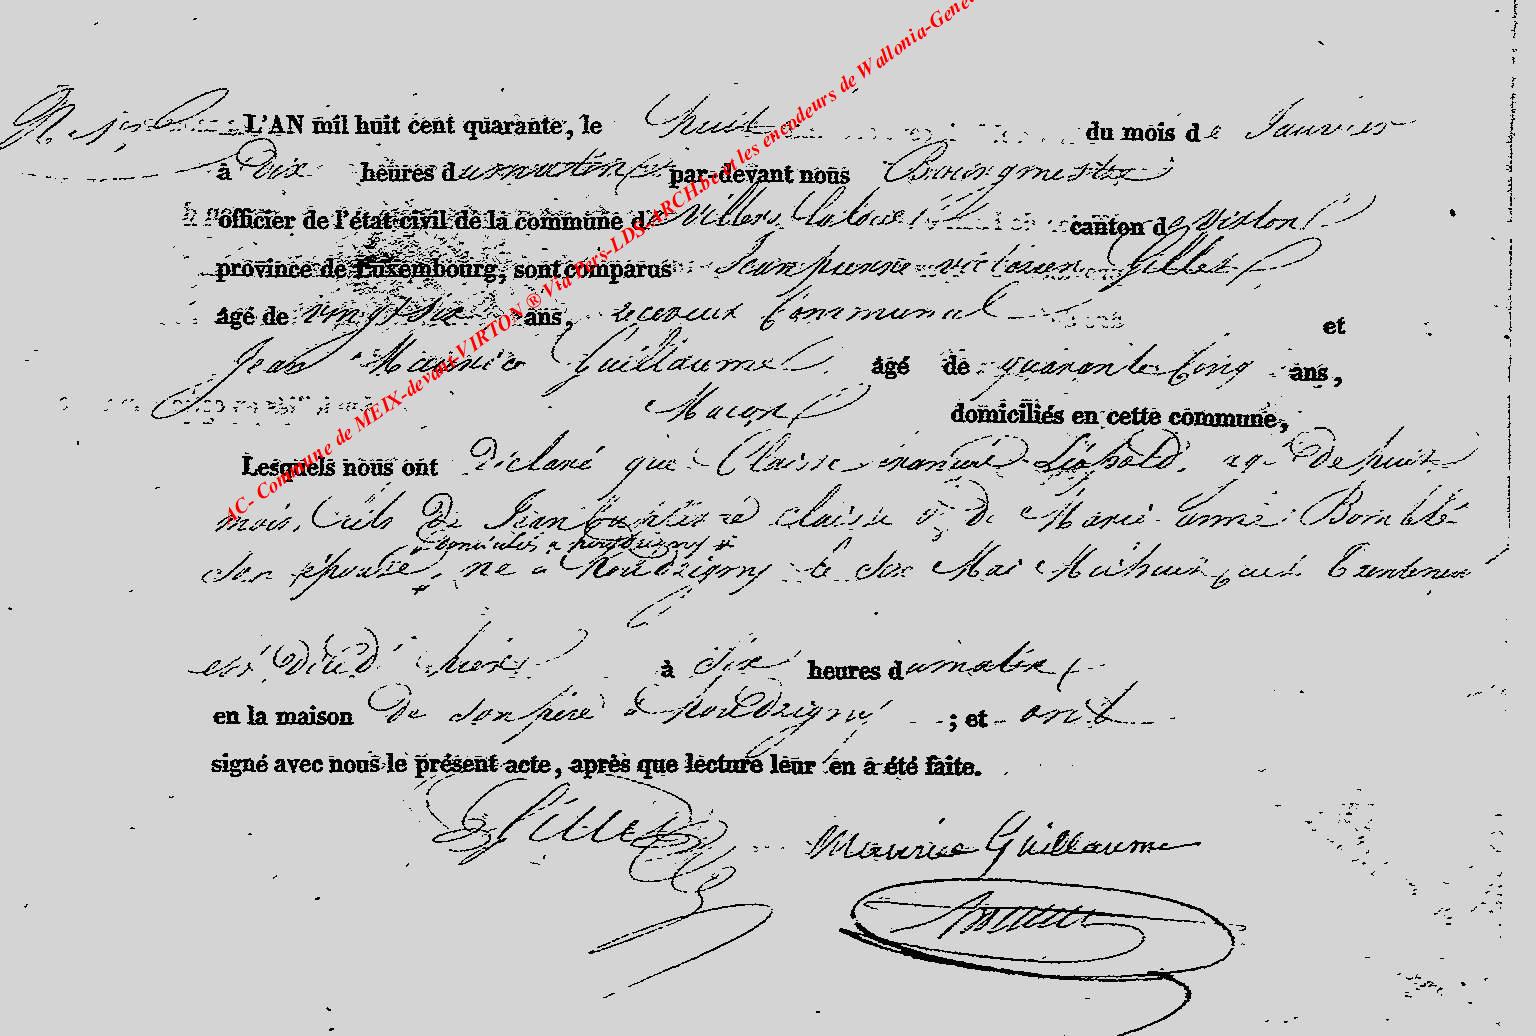 L'AN mil huit cent quarante, le huit du mois de Janvier
à Dix heures du matin par-devant nous Bourgmestre
officier de l'état civil de la commune de Villers Laloue canton de Virton
province de Luxembourg, sont comparus Jean pierre victorien Gilles
âgé de vingt six ans, receveur Communal et
Jean Maurice Guillaume âgé de quarante Cinq ans,
Macon domiciliés en cette commune,
Lesquels nous ont Déclaré que Claisse Léopold, agé De huit
mois, fils De Jean claisse & De Marie anne
domiciliés a houdrigny
son épouse, né a houdrigny le six Mai Mil huit cent Trente neuf
est décédé hier à six heures du matin
en la maison De son père à houdrigny ; et ont
signé avec nous le présent acte, après que lecture leur en a été faite.
Gilles
Maurice Guillaume
AC- Commune de MEIX-devant-VIRTON ® Via Pers-LDS-ARCH.be et les encodeurs de Wallonia-Gene